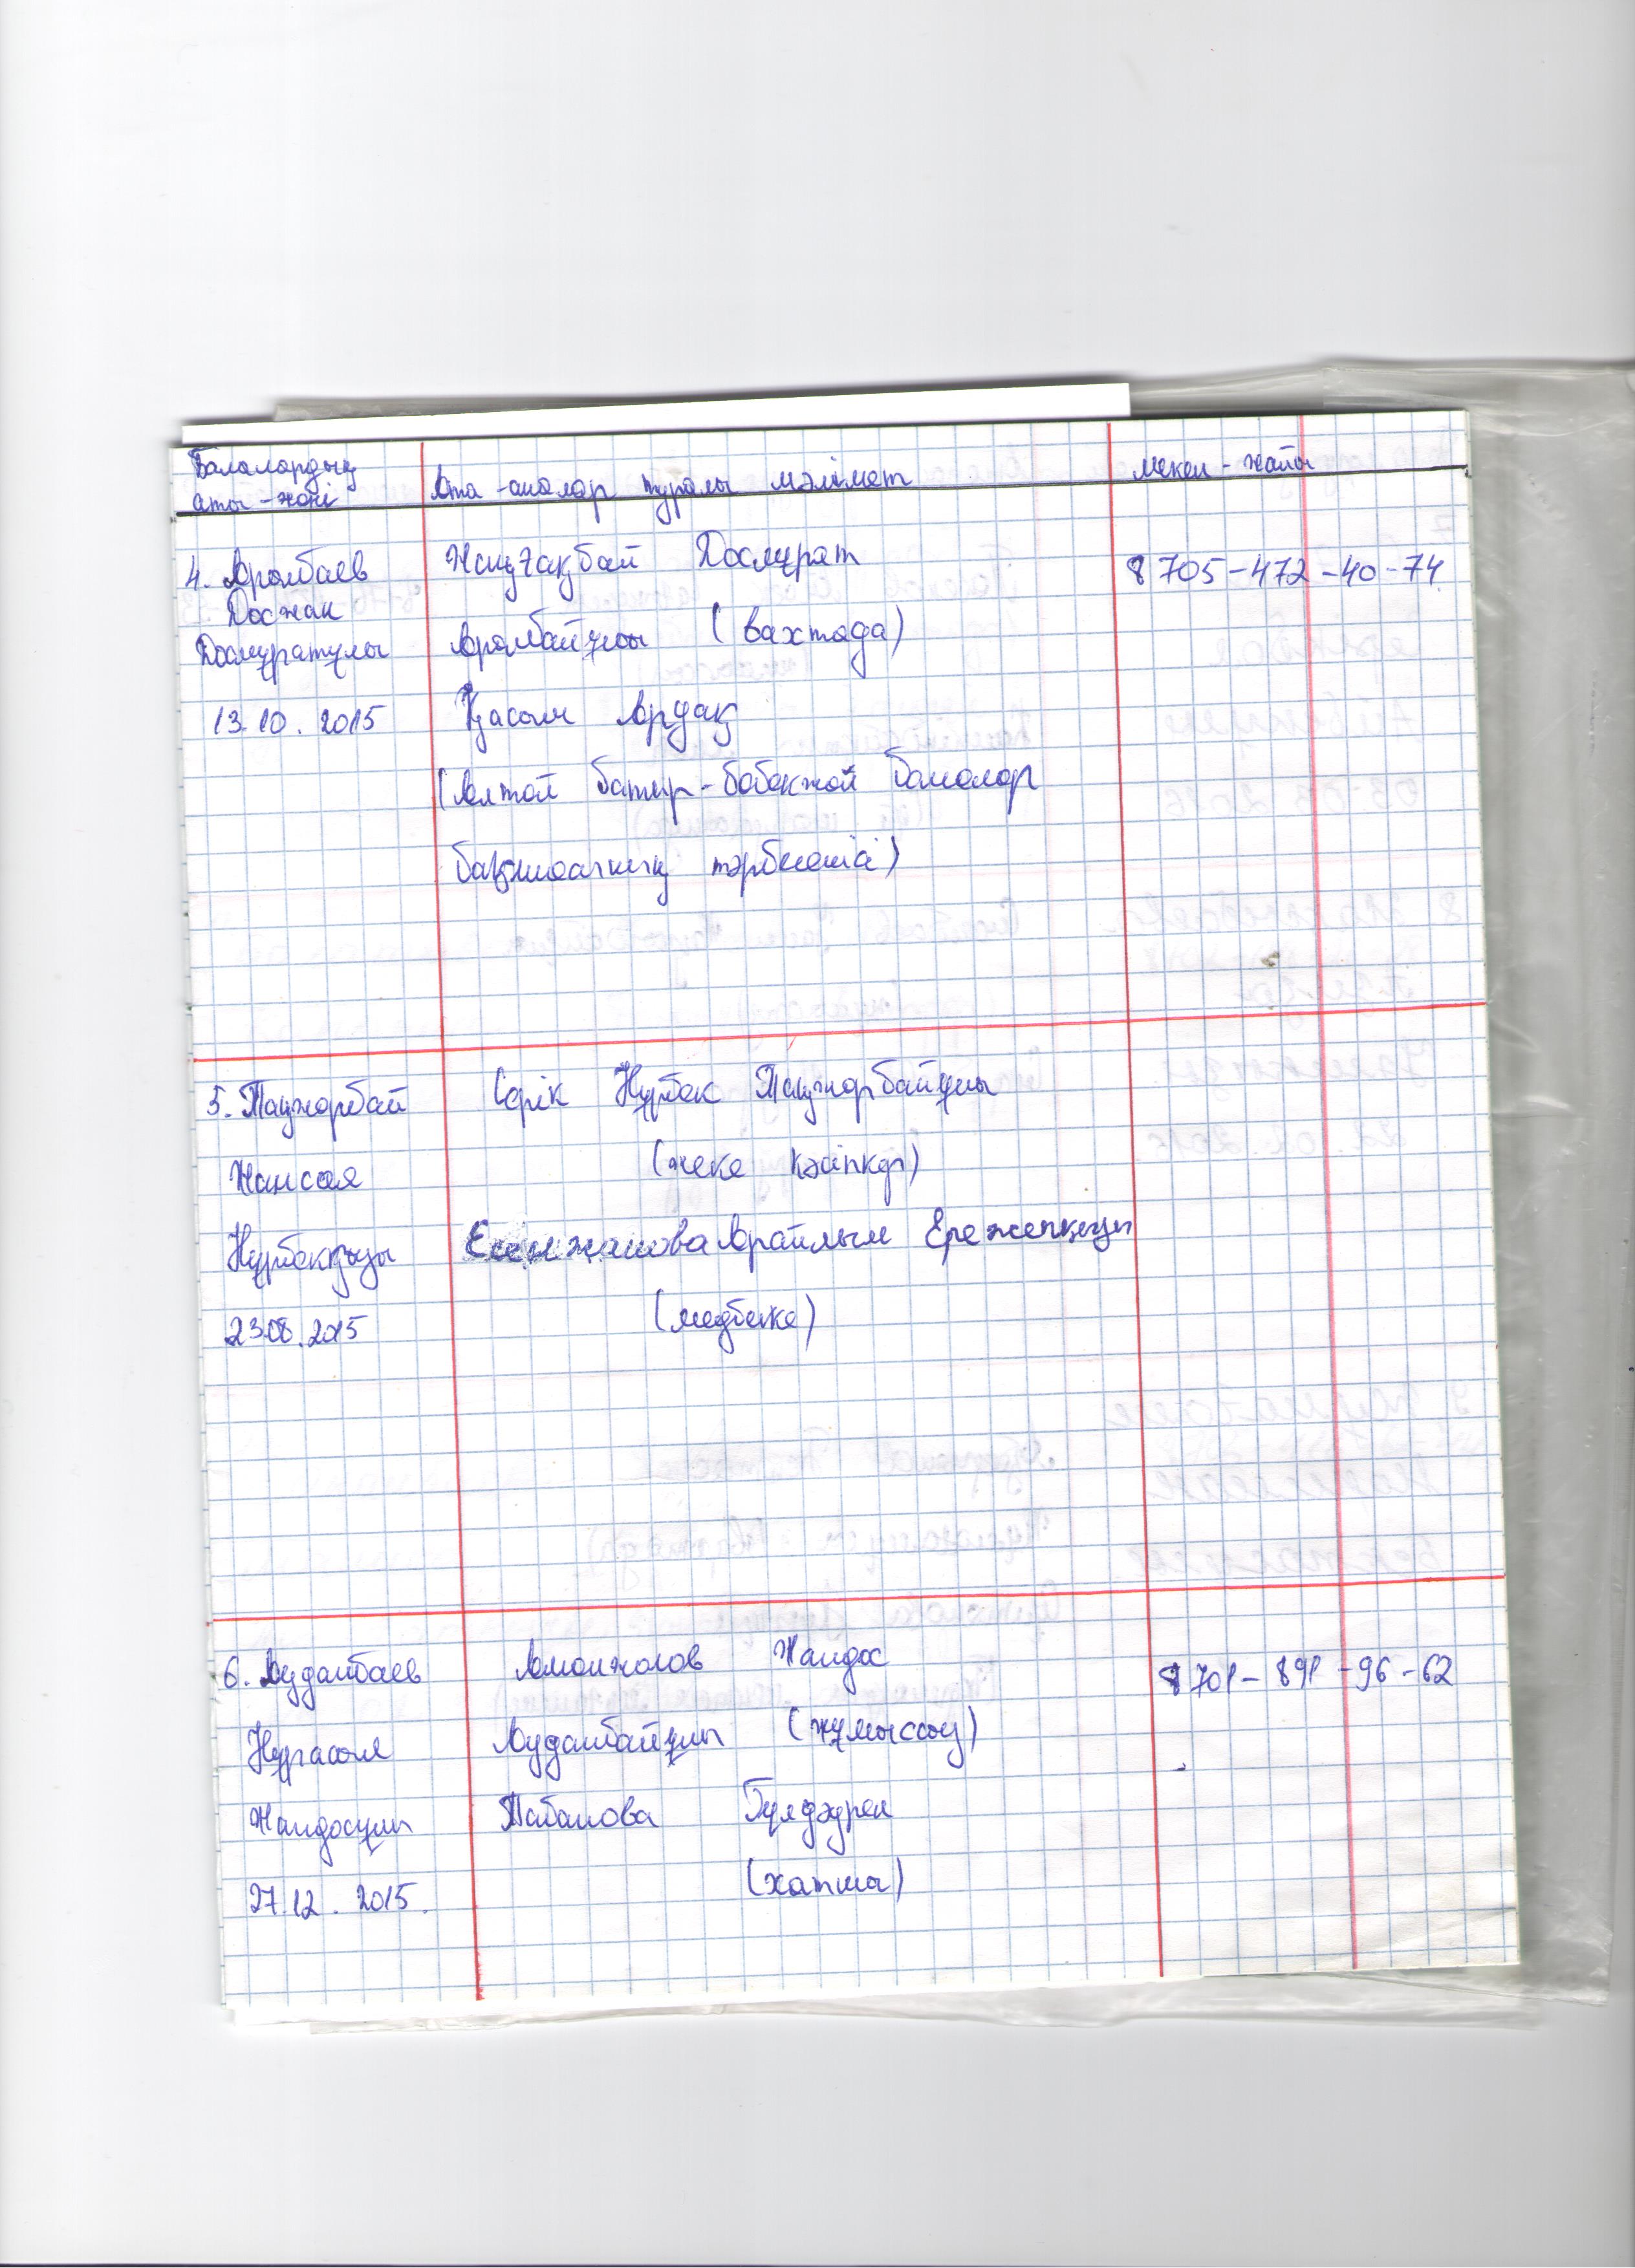 Балалардың
аты-жөні
Ата-аналар туралы мәлімет
Мекен-жайы
4. Аралбаев
Досжан
Досмұратұлы
13.10.2015
Досмұрат
Аралбайұлы (вахтада)
Қасым Ардақ
(Алтай батыр-бөбекжай балалар
бақшасының тәрбиешісі)
8 705-472-40-74
5. Таужарбай
Жансая
Нұрбекқызы
23.08.2015
Серік Нұрбек Таужарбайұлы
(жеке кәсіпкер)
Есенжанова Арайлым Ережепқызы
(медбике)
6. Ауданбаев
Нұрасыл
Жандосұлы
27.12.2015.
Аманжолов Жандос
Ауданбайұлы (жұмыссыз)
Табанова
(хатшы)
8 701-891-96-62